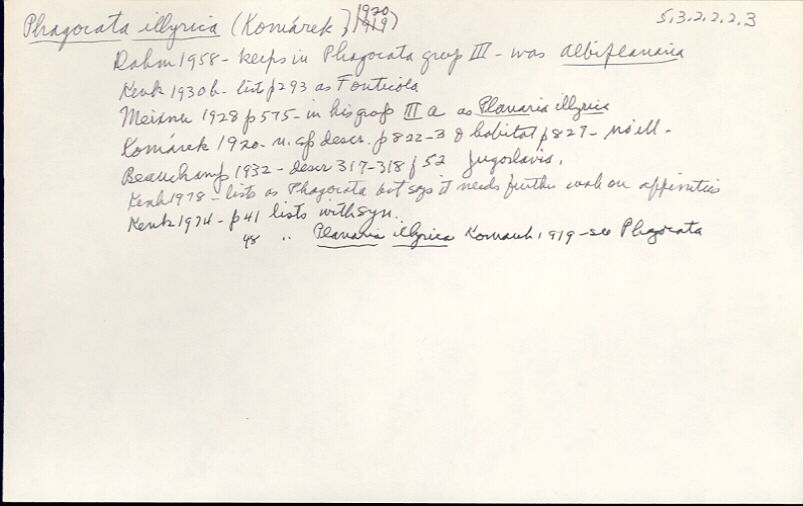 Phagocata illyrica (Komárek, 1920 1919) 5.3.2.2.2.3
Dahm 1958 - keeps in Phagocata group III - was Albiplanaria
Kenk 1930b - list p293 as Fonticola
Meixner 1928 p575 - in his group III a as Planaria illyrica
Komárek 1920 - n. sp descr. p822-3 & habitat p827 - no ill.
Beauchamp 1932 - descr 317-318 f 52 Jugoslavia.
Kenk 1978 - lists as Phagocata but says it needs further work on affinities
Kenk 1974 - p41 lists with syn.
48 " Planaria illyrica Komarek 1919 - see Phagocata